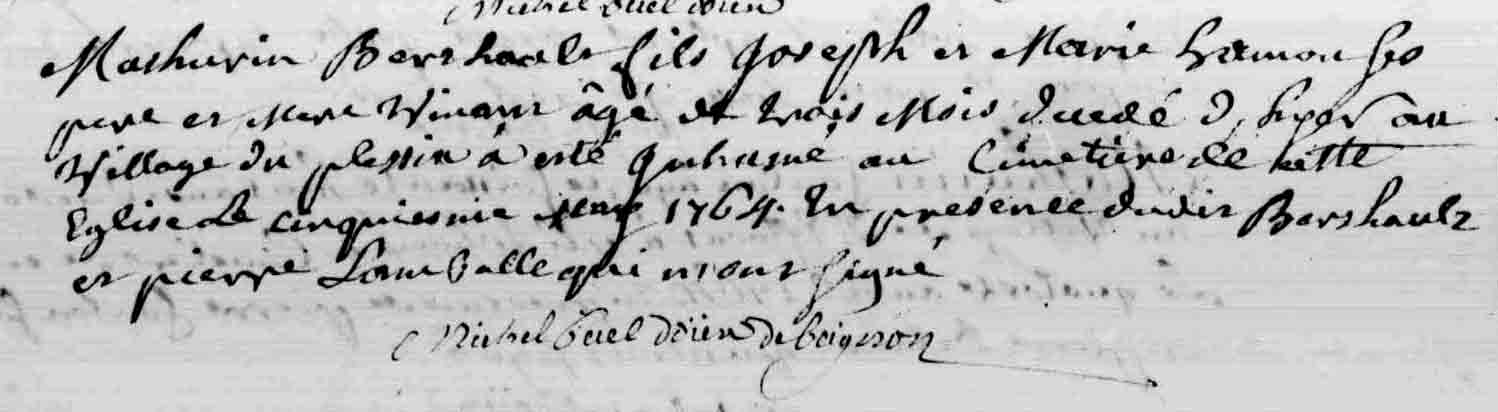 Michel Guel doien
Mathurin Bershault fils Joseph et Marie hamon ses
pere et Mere Vivant âgé de trois Mois decedé d'hyer au
Village du plessix à esté Inhumé au Cimetiere de cette
Eglise Le cinquiesme 1764. En présence dudit Bershault
et pierre Lamballe qui n'ont signé
Michel Guel doien de beignon